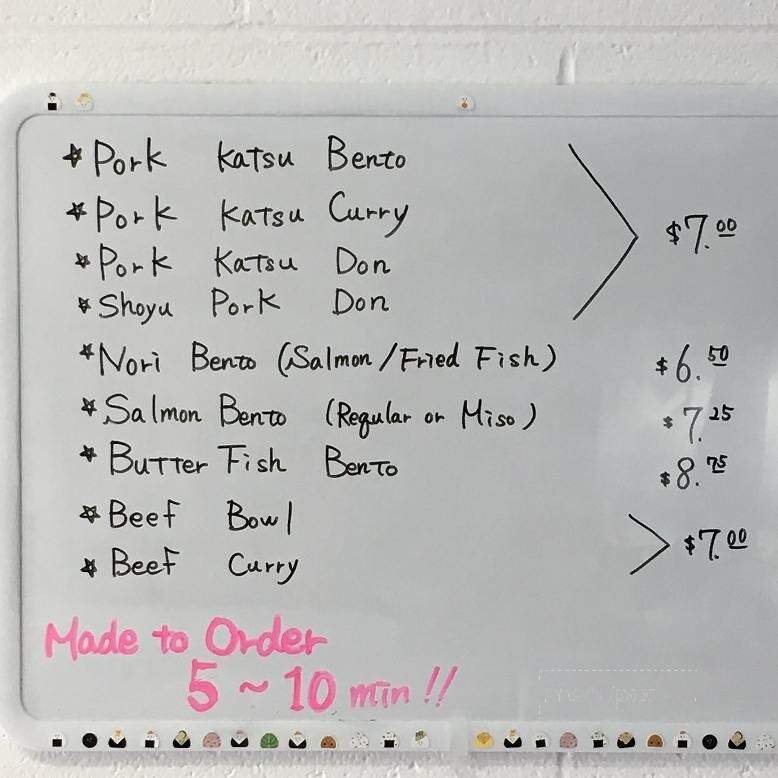 Pork Katsu Bento
Pork Katsu Curry
$7.00
Pork Katsu Don
Shoyu Pork Don
Nori Bento (Salmon/Fried Fish) $6.50
Salmon Bento (Regular or Miso) $7.25
Butter Fish Bento $8.75
Beef Bowl
$7.00
Beef Curry
Made to Order
5 ~ 10 min!!